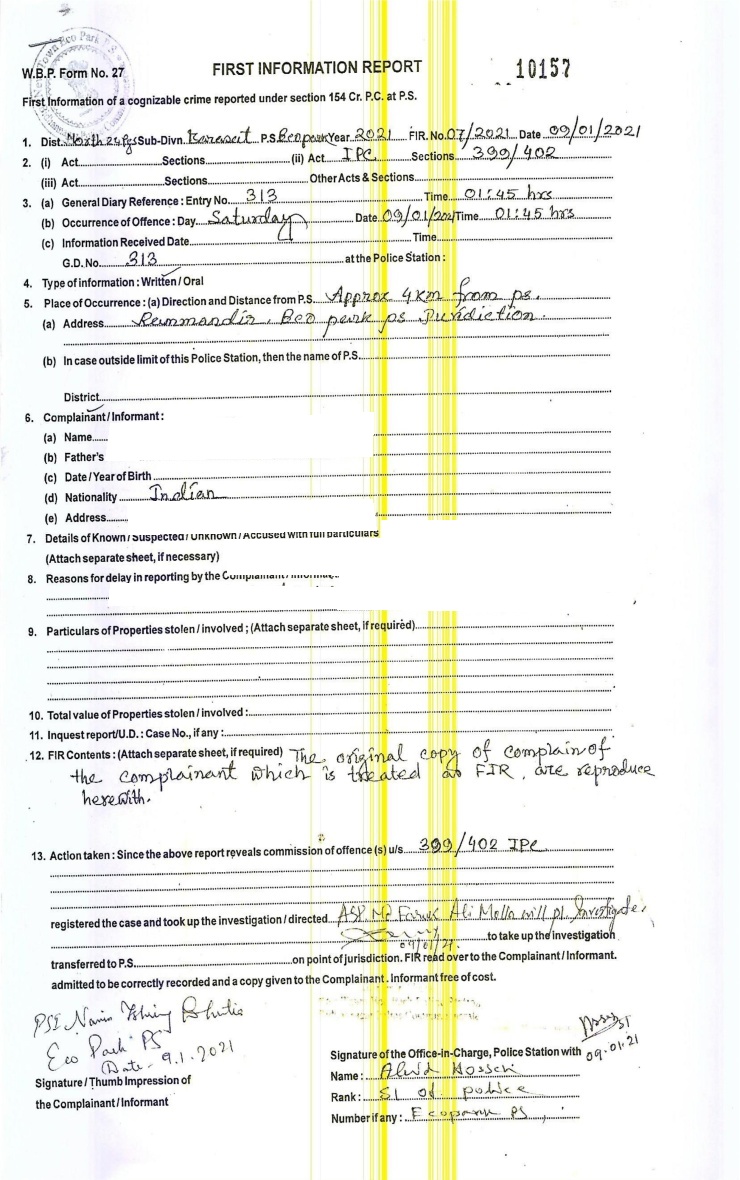 W.B.P. Form No. 27
FIRST INFORMATION REPORT
10157
First Information of a cognizable crime reported under section 154 Cr. P.C. at P.S.
1. Dist. North 24 Pgs Sub-Divn. Barasat P.S. Ecopark Year 2021 FIR. No. 07/2021 Date 09/01/2021
2. (i) Act Sections (ii) Act IPC Sections 399/402
(iii) Act Sections Other Acts & Sections
3. (a) General Diary Reference : Entry No. 313 Time 01:45 hrs
(b) Occurrence of Offence : Day Saturday Date 09/01/2021 Time 01:45 hrs
(c) Information Received Date Time
G.D. No. 313 at the Police Station :
4. Type of information : Written / Oral
5. Place of Occurrence : (a) Direction and Distance from P.S. Approx 4 km from ps.
(a) Address Rammandir, Eco park ps Juridiction.
(b) In case outside limit of this Police Station, then the name of P.S.
District
6. Complainant / Informant :
(a) Name
(b) Father's
(c) Date / Year of Birth
(d) Nationality Indian
(e) Address
7. Details of Known / Suspected / Unknown / Accused with full particulars
(Attach separate sheet, if necessary)
8. Reasons for delay in reporting by the Complainant / Informant
9. Particulars of Properties stolen / involved ; (Attach separate sheet, if required)
10. Total value of Properties stolen / involved :
11. Inquest report / U.D. : Case No., if any :
12. FIR Contents : (Attach separate sheet, if required) The original copy of complain of
the complainant which is treated as FIR, are reproduce
herewith.
13. Action taken : Since the above report reveals commission of offence (s) u/s 399/402 IPC
registered the case and took up the investigation / directed ASI Md Faruk Ali Molla will pl. Investigate.
09/01/21. to take up the investigation
transferred to P.S. on point of jurisdiction. FIR read over to the Complainant / Informant.
admitted to be correctly recorded and a copy given to the Complainant . Informant free of cost.
PSI Tshering Bhutia
Eco Park PS
Date - 9.1.2021
Signature / Thumb Impression of
the Complainant / Informant
SI
09.01.21
Signature of the Office-in-Charge, Police Station with
Name : Hossen
Rank : SI of police
Number if any : Ecopark PS